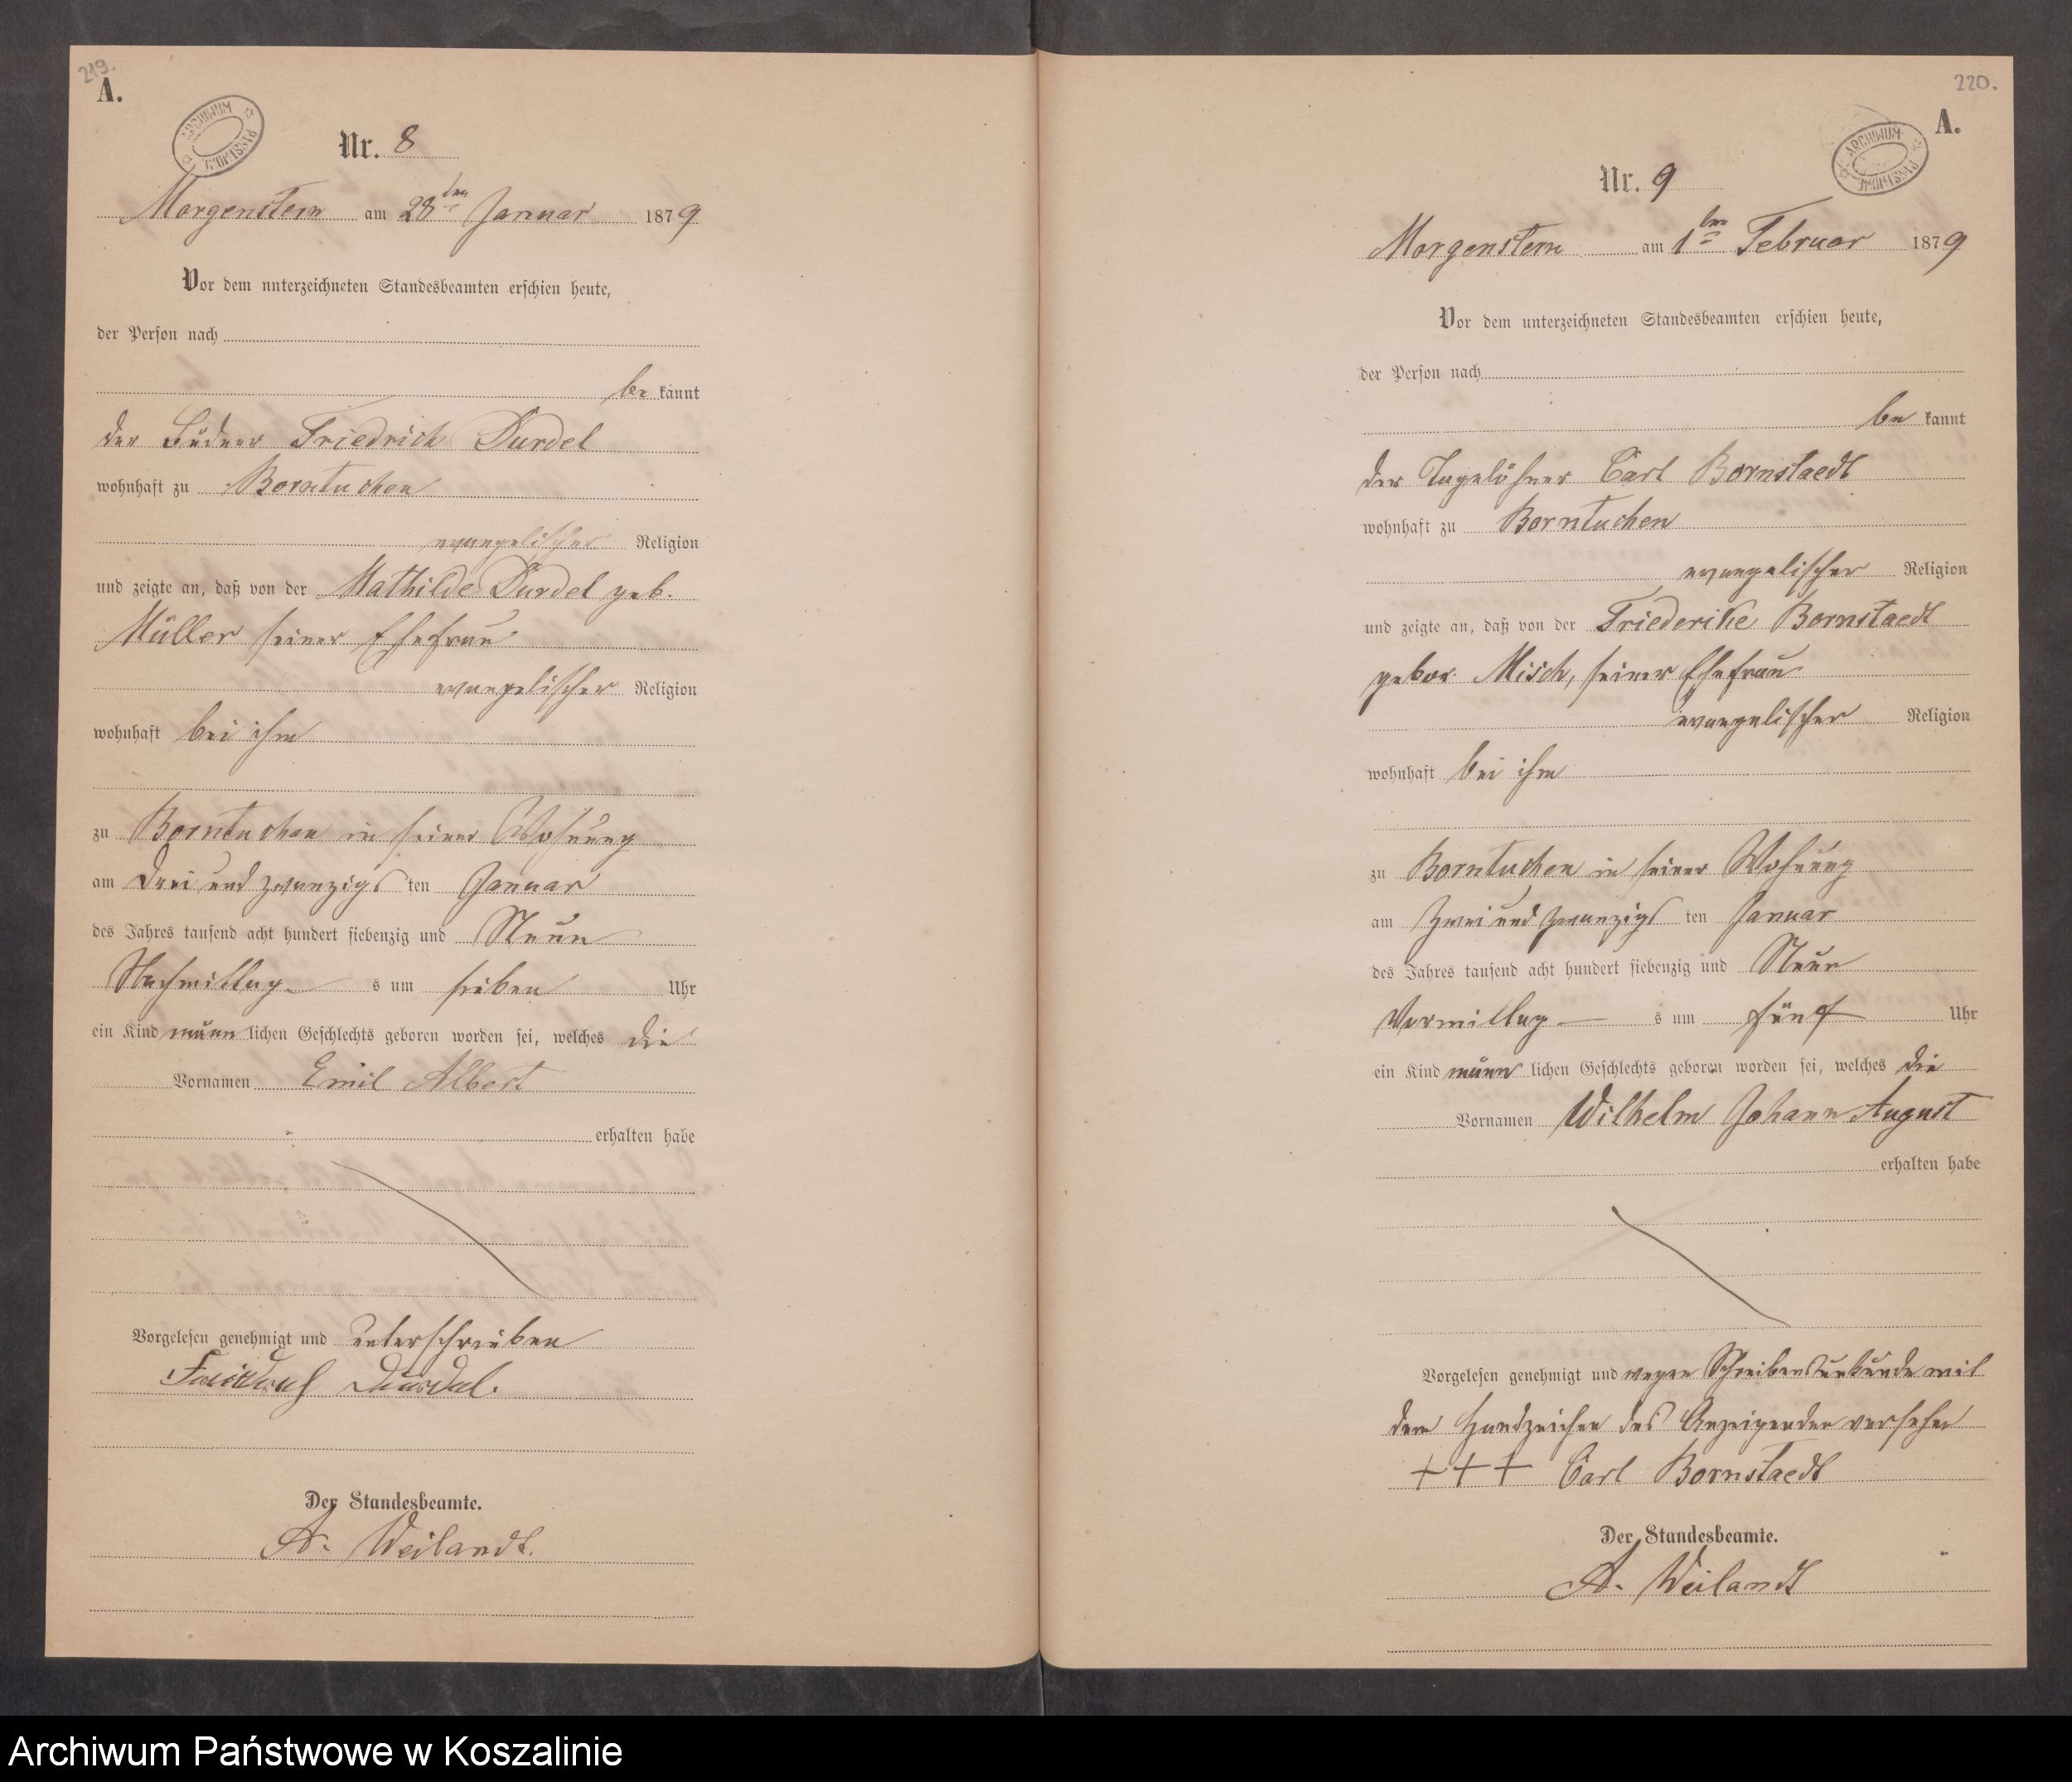 219.
A.
ARCHIWUM PAŃSTWOWE
Nr. 8
Morgenstern am 28ten Januar 1879
Vor dem unterzeichneten Standesbeamten erschien heute,
der Person nach
bekannt
der Büdner Friedrich Durdel
wohnhaft zu Borntuchen
evangelischer Religion
und zeigte an, daß von der Mathilde Durdel geb.
Müller seiner Ehefrau
evangelischer Religion
wohnhaft bei ihm
zu Borntuchen in seiner Wohnung
am drei und zwanzigsten Januar
des Jahres tausend acht hundert siebenzig und Neun
Nachmittags um sieben Uhr
ein Kind männlichen Geschlechts geboren worden sei, welches die
Vornamen Emil Albert
erhalten habe
Vorgelesen genehmigt und unterschrieben
Friedrich Durdel.
Der Standesbeamte.
A. Weilandt.
220.
A.
ARCHIWUM PAŃSTWOWE
Nr. 9
Morgenstern am 1ten Februar 1879
Vor dem unterzeichneten Standesbeamten erschien heute,
der Person nach
bekannt
der Tagelöhner Carl Bornstaedt
wohnhaft zu Borntuchen
evangelischer Religion
und zeigte an, daß von der Friederike Bornstaedt
gebor. Misch, seiner Ehefrau
evangelischer Religion
wohnhaft bei ihm
zu Borntuchen in seiner Wohnung
am Zwei und zwanzigsten Januar
des Jahres tausend acht hundert siebenzig und Neun
Vormittags um fünf Uhr
ein Kind männlichen Geschlechts geboren worden sei, welches die
Vornamen Wilhelm Johann August
erhalten habe
Vorgelesen genehmigt und wegen Schreibensunkunde mit
dem Handzeichen des Anzeigenden versehen
+++ Carl Bornstaedt
Der Standesbeamte.
A. Weilandt
Archiwum Państwowe w Koszalinie